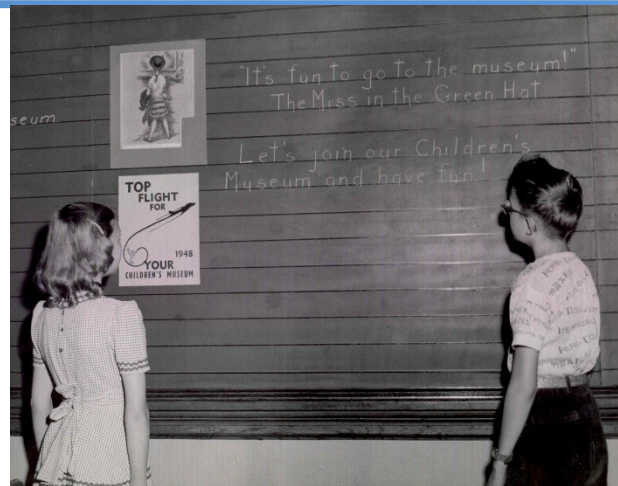 seum.
"It's fun to go to the museum!"
The Miss in the Green Hat
Let's join our Children's
Museum and have fun!
TOP
FLIGHT
FOR
1948
YOUR
CHILDREN'S MUSEUM